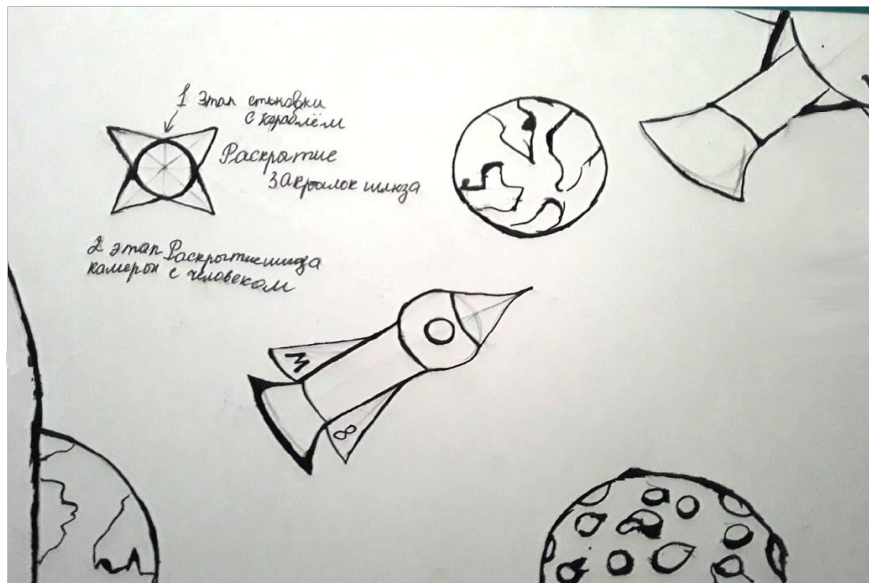 1 этап стыковки
с кораблём
Раскрытие
закрылок шлюза
2 этап Раскрытие шлюза
камеры с человеком
М
8